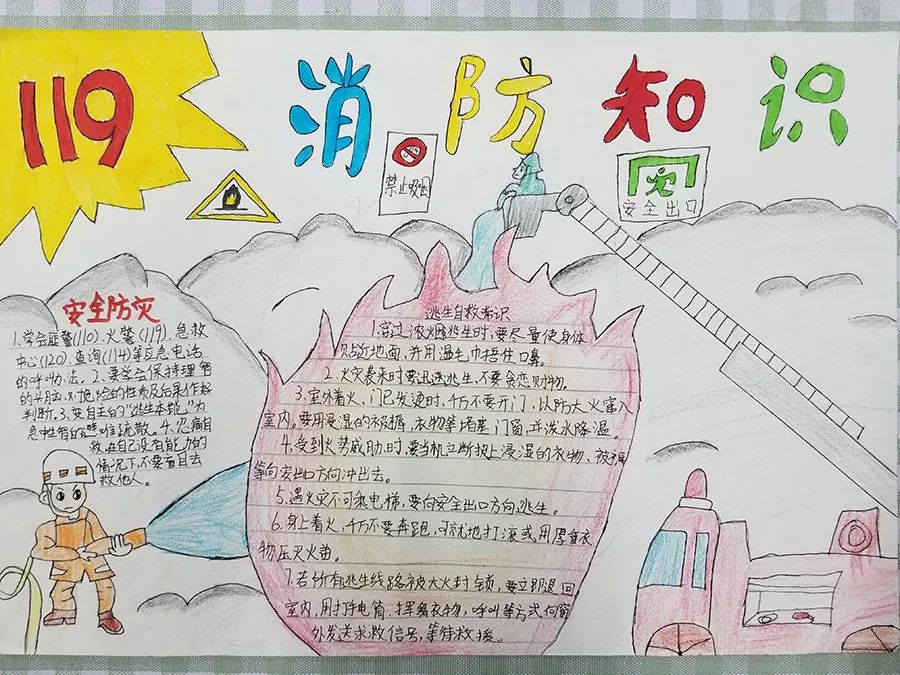 119 消防知识
禁止吸烟
安全出口
安全防灾
1.学会匪警(110).火警(119).急救
中心(120).查询(114)等应急电话
的呼叫办法。2.要学会保持理智
的头脑,对危险的性质及后果作好
判断。3.变自主的"逃生本能"为
急性智的避难疏散。4.忍痛自
救,在自己没有能力的
情况下,不要盲目去
救他人。
逃生自救常识
1.穿过浓烟逃生时,要尽量使身体
贴近地面,并用湿毛巾捂住口鼻。
2.火灾袭来时要迅速逃生,不要贪恋财物。
3.室外着火,门已发烫时,千万不要开门,以防大火窜入
室内。要用浸湿的被褥、衣物等堵塞门窗,并泼水降温。
4.受到火势威胁时,要当机立断披上浸湿的衣物、被褥
等向安出口方向冲出去。
5.遇火灾不可乘电梯,要向安全出口方向逃生。
6.身上着火,千万不要奔跑,可就地打滚或用厚重衣
物压灭火苗。
7.若所有逃生线路被大火封锁,要立即退回
室内,用打手电筒、挥舞衣物,呼叫等方式向窗
外发送求救信号,等待救援。